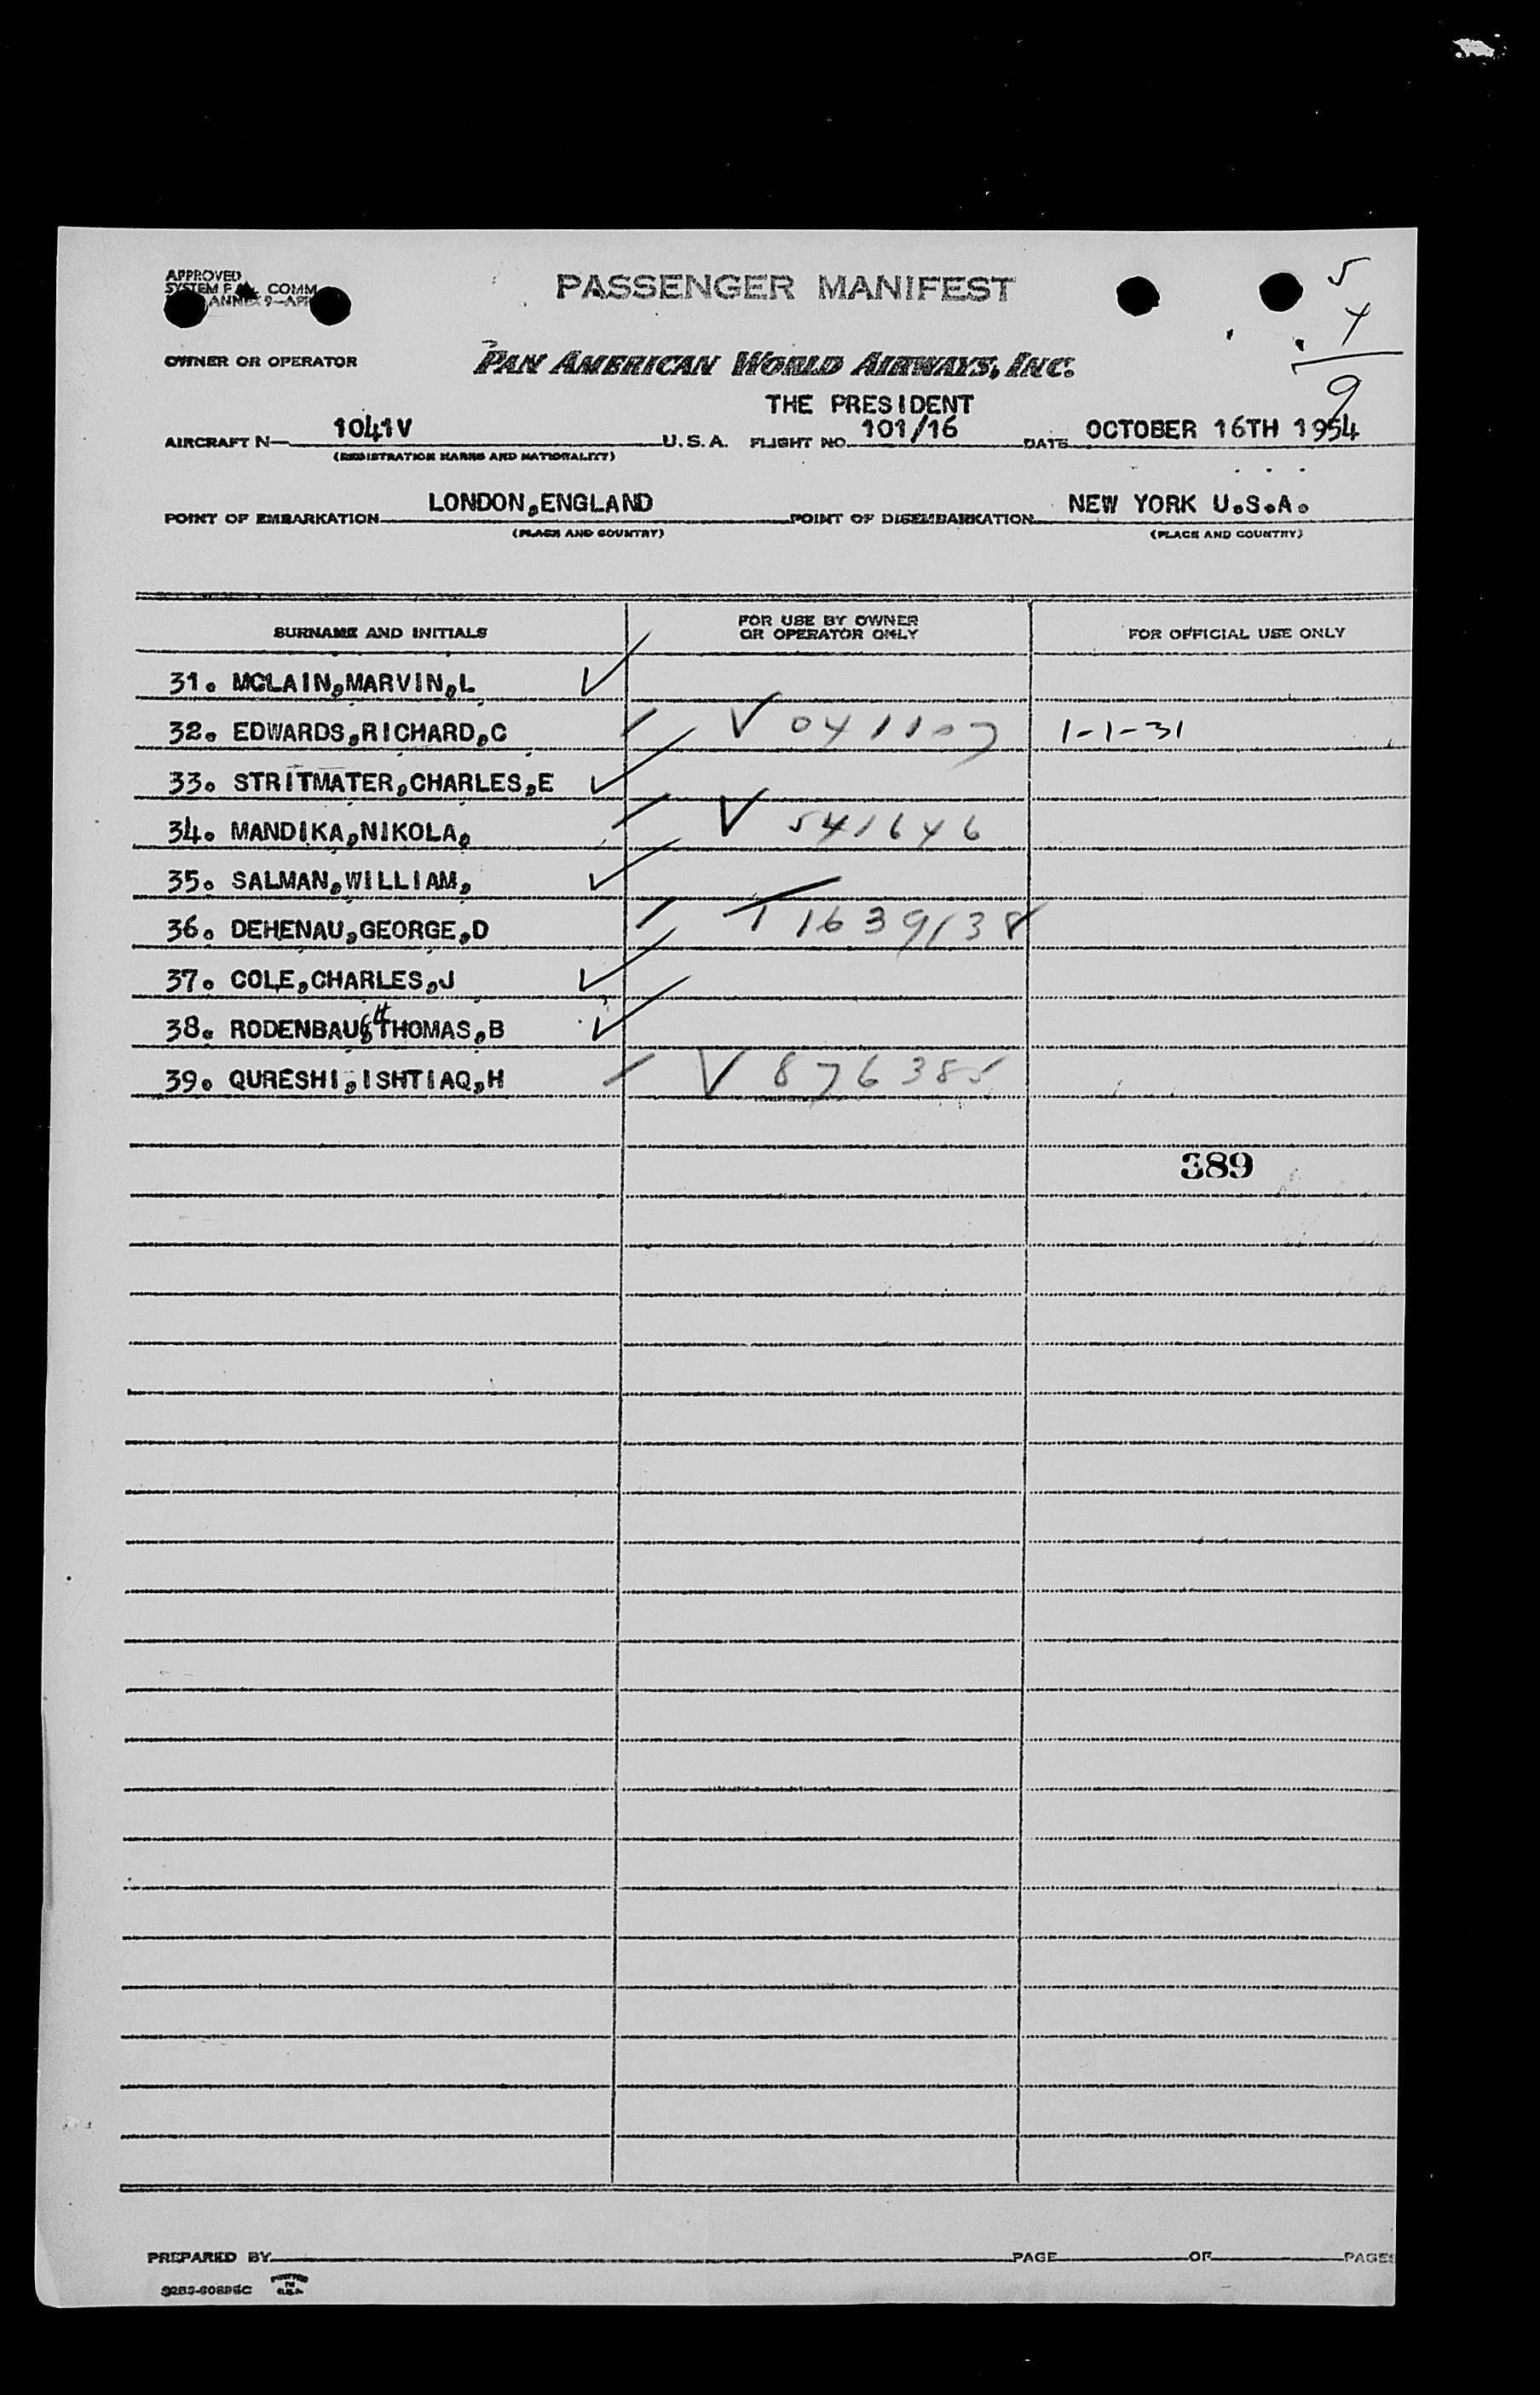 APPROVED
SYSTEM F
COMM
ANNEX 9—APP
PASSENGER MANIFEST
5
4
9
OWNER OR OPERATOR
PAN AMERICAN WORLD AIRWAYS, INC.
THE PRESIDENT
AIRCRAFT N— 1041V U.S.A. FLIGHT NO. 101/16 DATE OCTOBER 16TH 1954
(REGISTRATION MARKS AND NATIONALITY)
POINT OF EMBARKATION LONDON,ENGLAND POINT OF DISEMBARKATION NEW YORK U.S.A.
(PLACE AND COUNTRY) (PLACE AND COUNTRY)
SURNAME AND INITIALS
FOR USE BY OWNER
OR OPERATOR ONLY
FOR OFFICIAL USE ONLY
31. MCLAIN,MARVIN,L ✓
32. EDWARDS,RICHARD,C V 041107 1-1-31
33. STRITMATER,CHARLES,E ✓
34. MANDIKA,NIKOLA, V 541646
35. SALMAN,WILLIAM, ✓
36. DEHENAU,GEORGE,D T 1639138
37. COLE,CHARLES,J ✓
38. RODENBAUGH THOMAS,B ✓
39. QURESHI,ISHTIAQ,H V 876385
389
PREPARED BY PAGE OF PAGES
PRINTED
IN
U.S.A.